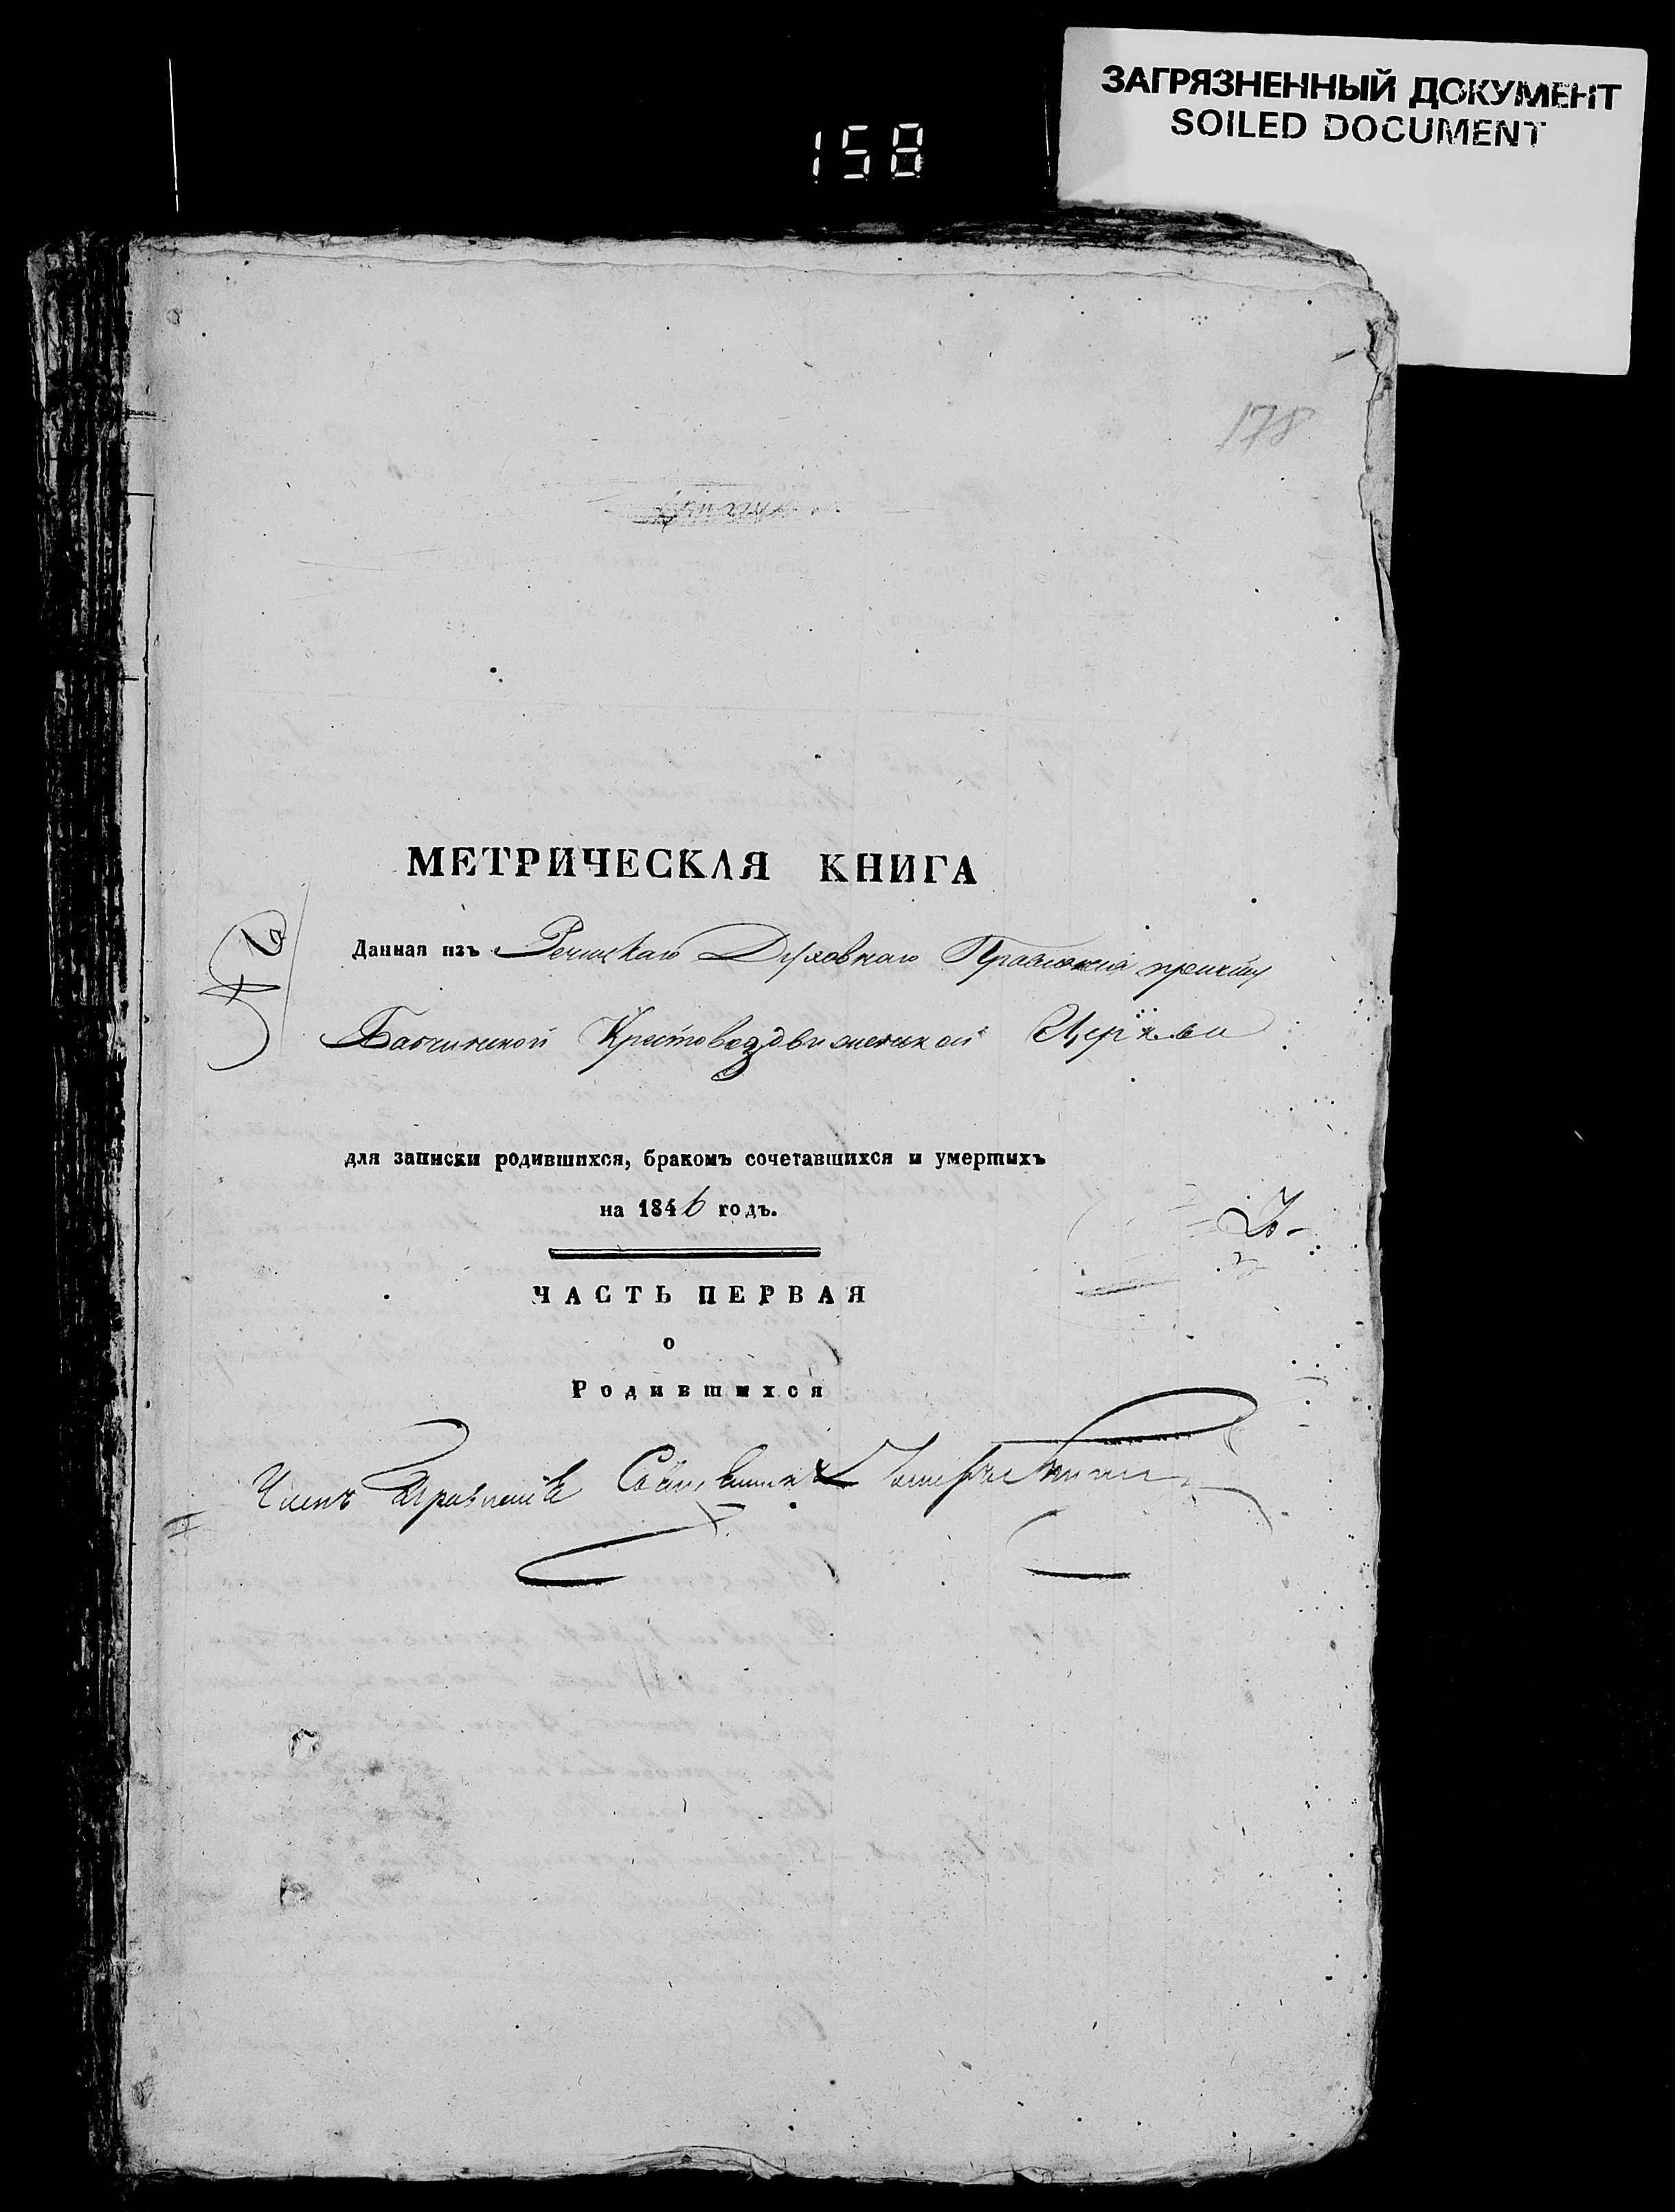 ЗАГРЯЗНЕННЫЙ ДОКУМЕНТ
SOILED DOCUMENT
158
178
МЕТРИЧЕСКАЯ КНИГА
Данная изъ Речицкаго Духовнаго Правленія
Крестовоздвиженской Церкви
для записки родившихся, бракомъ сочетавшихся и умершихъ
на 1846 годъ.
ЧАСТЬ ПЕРВАЯ
о
Родившихся
Членъ Правленія Священникъ